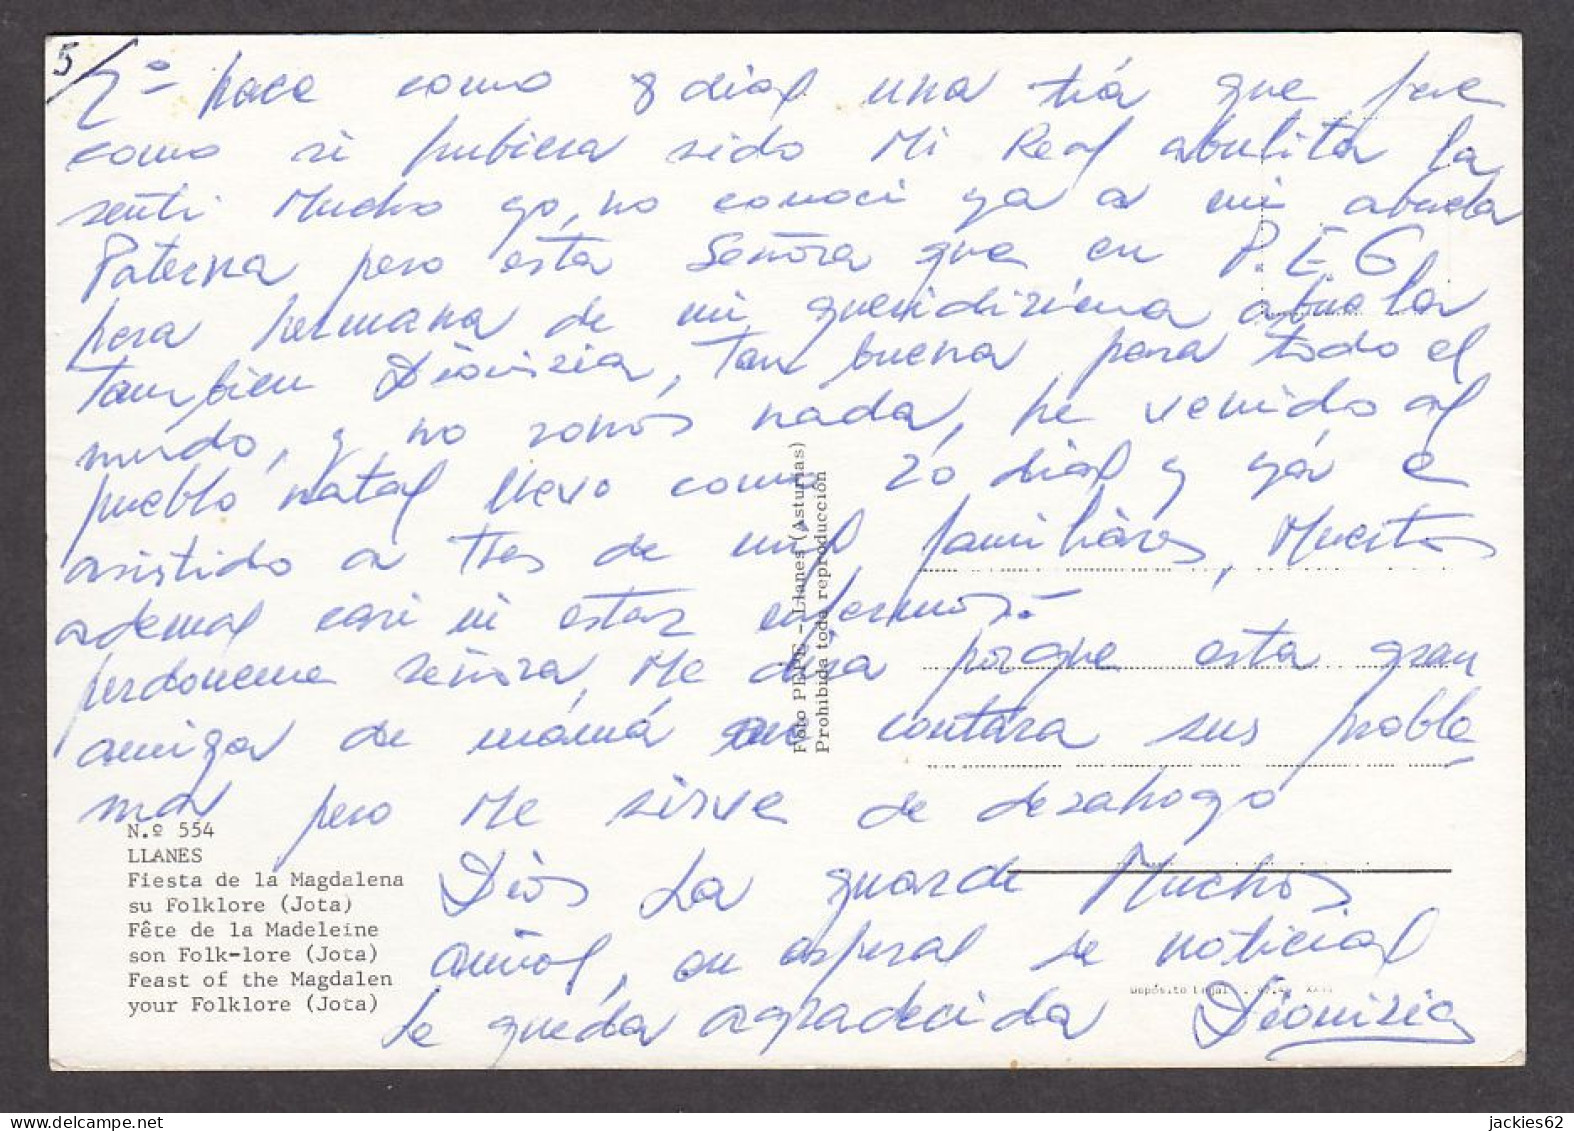 5/
2º= hace como 8 dias una tiá que fue
como si hubiera sido Mi Real abulita la
senti Mucho yo, no conoci ya a mi abuela
Paterna pero esta Señora que en P.E.G.
hera hermana de mi queridiziema abuela
tambien Dionizia, tan buena para todo el
mudo, y no somos nada, he venido al
pueblo natal llevo como 20 dias y yá e
asistido a tres de mis familiáres, Muertos
ademas casi ni estar enfermos.=
perdoneme señora, Me dira porque esta gran
amiga de mámá me contára sus proble
mas pero Me sirve de dezahogo
Diós La guarde Muchos
añños, en esperas de noticias
le quéda agradecida Dionizia
Foto PEPE - Llanes (Asturias)
Prohibida toda reproducción
N.º 554
LLANES
Fiesta de la Magdalena
su Folklore (Jota)
Fête de la Madeleine
son Folk-lore (Jota)
Feast of the Magdalen
your Folklore (Jota)
Depósito Legal
jackies62